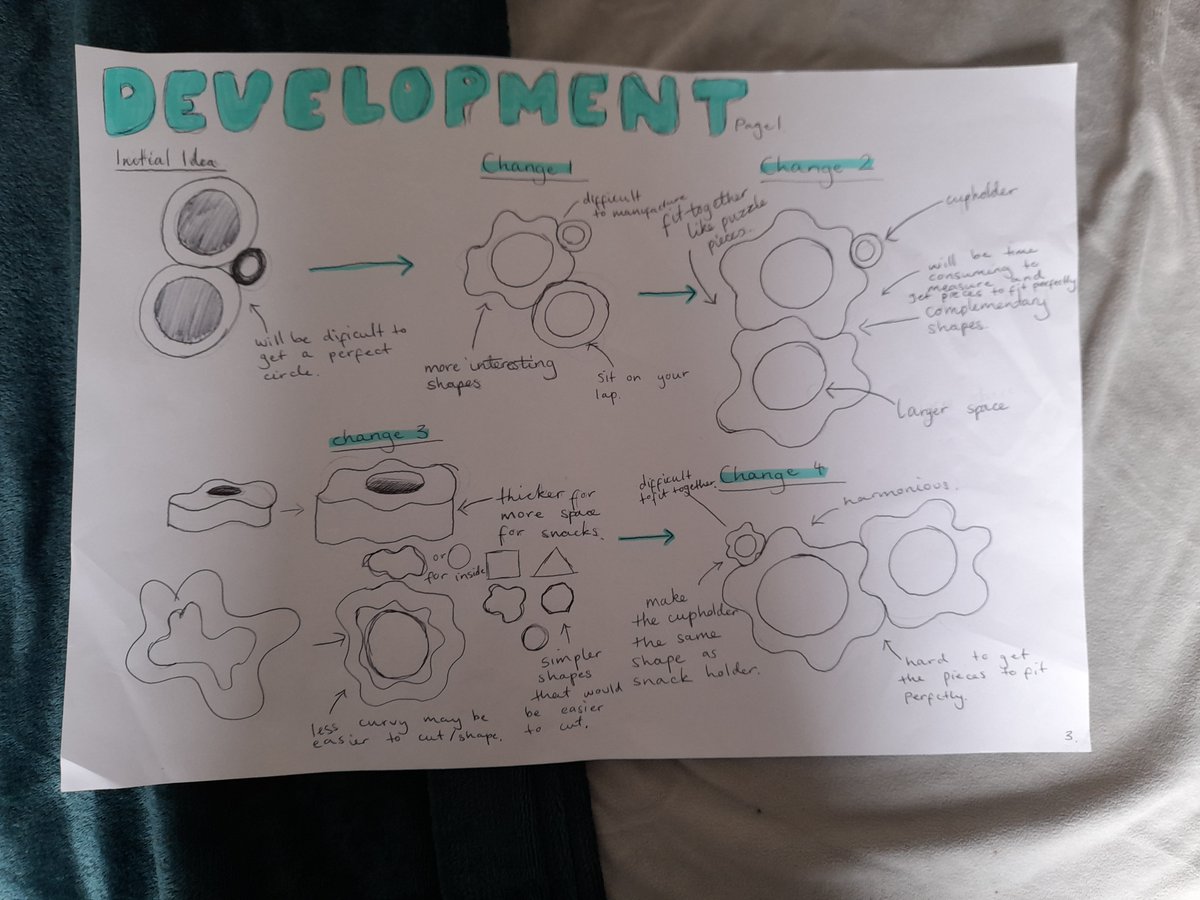 DEVELOPMENT
Page 1
Initial Idea
will be dificult to
get a perfect
circle.
Change 1
difficult
to manufacture
more interesting
shapes
sit on your
lap.
Change 2
fit together
like puzzle
pieces.
cupholder
will be time
consuming to
measure and
get pieces to fit perfectly
complementary
shapes.
Larger space
change 3
thicker for
more space
for snacks.
or
for inside
simpler
shapes
that would
be easier
to cut.
less curvy may be
easier to cut/shape.
Change 4
difficult
to fit together.
harmonious.
make
the cupholder
the same
shape as
snack holder.
hard to get
the pieces to fit
perfctly.
3.